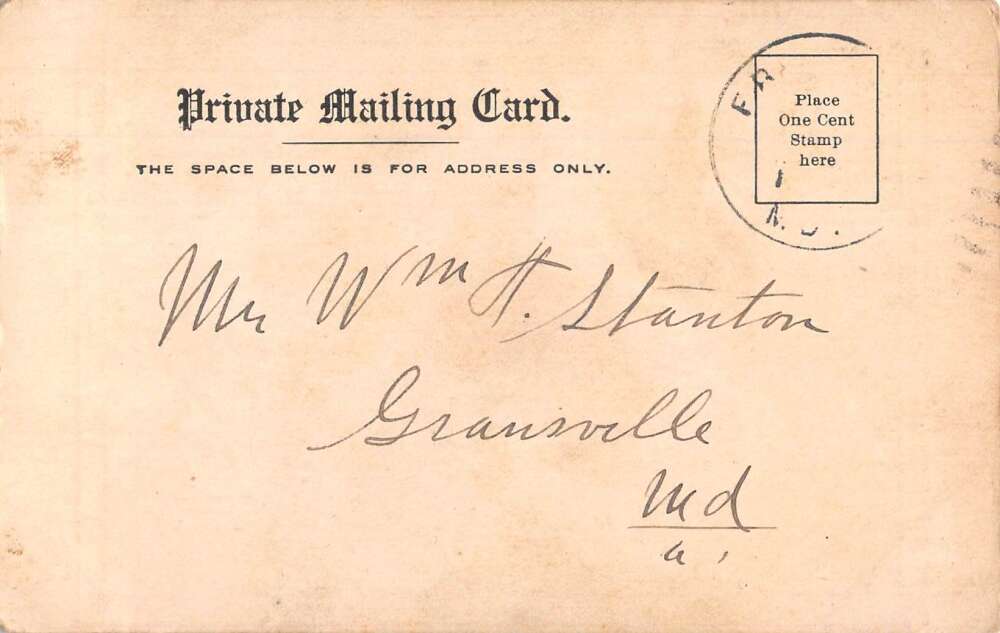 Private Mailing Card.
THE SPACE BELOW IS FOR ADDRESS ONLY.
Place
One Cent
Stamp
here
Mr Wm H. Stanton
Gransville
Md
a.